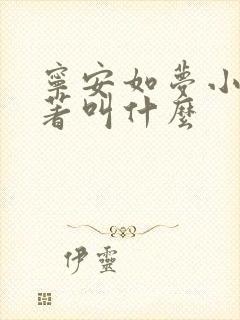 寧安如夢小
著叫什麼
伊靈